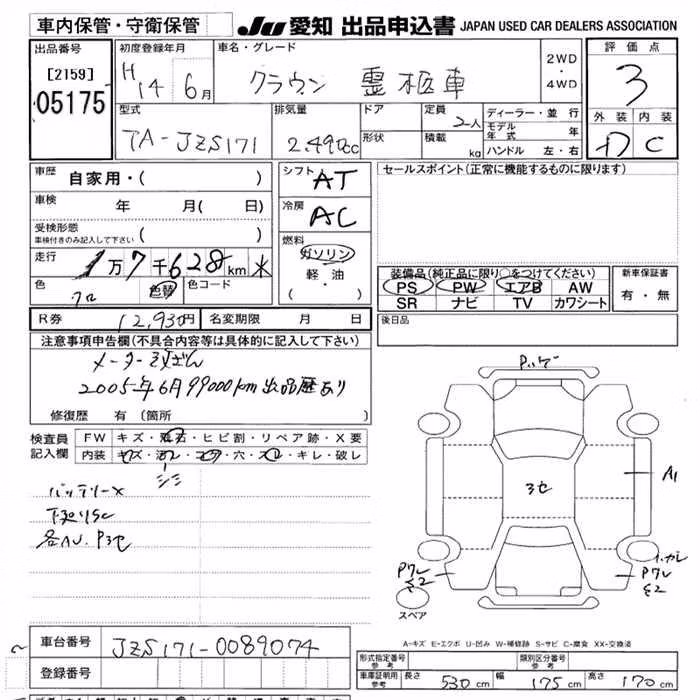 車内保管・守衛保管 JU 愛知 出品申込書 JAPAN USED CAR DEALERS ASSOCIATION
出品番号 [2159] 05175
初度登録年月 H14年 6月
車名・グレード クラウン 霊柩車
2WD・4WD
評価点 3
外装 D 内装 C
型式 TA-JZS171
排気量 2.490cc
ドア
形状
定員 2人
積載 kg
ディーラー・並行
モデル年式 年
ハンドル 左・右
車歴 自家用・( )
車検 年 月( 日)
受検形態 ( )
車検付きのみ記入して下さい
走行 1万7千628km
色 クロ 色替 色コード
R券 12,930円 名変期限 月 日
シフト AT
冷房 AC
燃料 ガソリン
軽・油
( ・ )
セールスポイント(正常に機能するものに限ります)
装備品(純正品に限り○をつけてください)
PS PW エアB AW
SR ナビ TV カワシート
新車保証書
有・無
後日品
注意事項申告欄(不具合内容等は具体的に記入して下さい)
メーター改ざん
2005年6月99000km出品歴あり
修復歴 有 (箇所 )
検査員記入欄
FW キズ・飛石・ヒビ割・リペア跡・X要
内装 キズ・汚レ・コゲ・穴・スレ・キレ・破レ
シミ
バッテリーX
下廻りSC
各AU、P3セ
Pハゲ
3セ
A1
Pワレ
ε2
Pワレ
ε2
スペア
A-キズ E-エクボ U-凹み W-補修跡 S-サビ C-腐食 XX-交換済
車台番号 JZS171-0089074
登録番号
形式指定番号 参考
類別区分番号 参考
車庫証明用 参考 長さ 530cm 幅 175cm 高さ 170cm